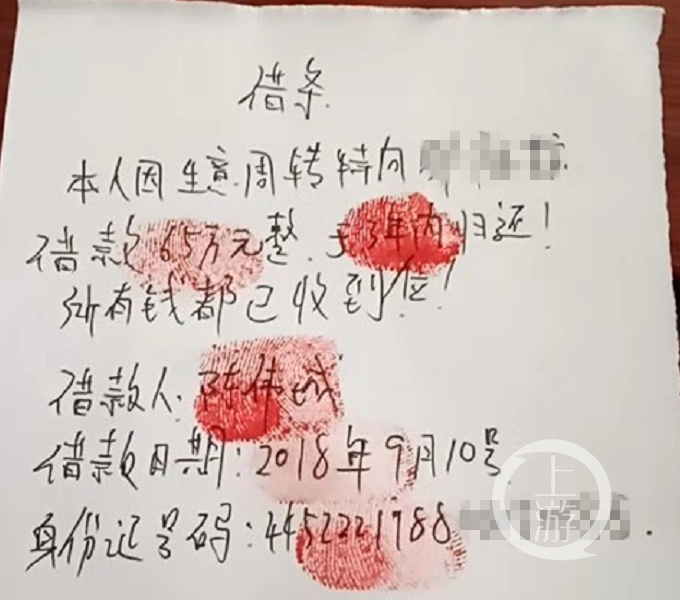 借条
本人因生意周转特向
借款65万元整.于3年内归还!
所有钱都已收到位!
借款人:陈伟城
借款日期:2018年9月10号
身份证号码:4452221988
上游